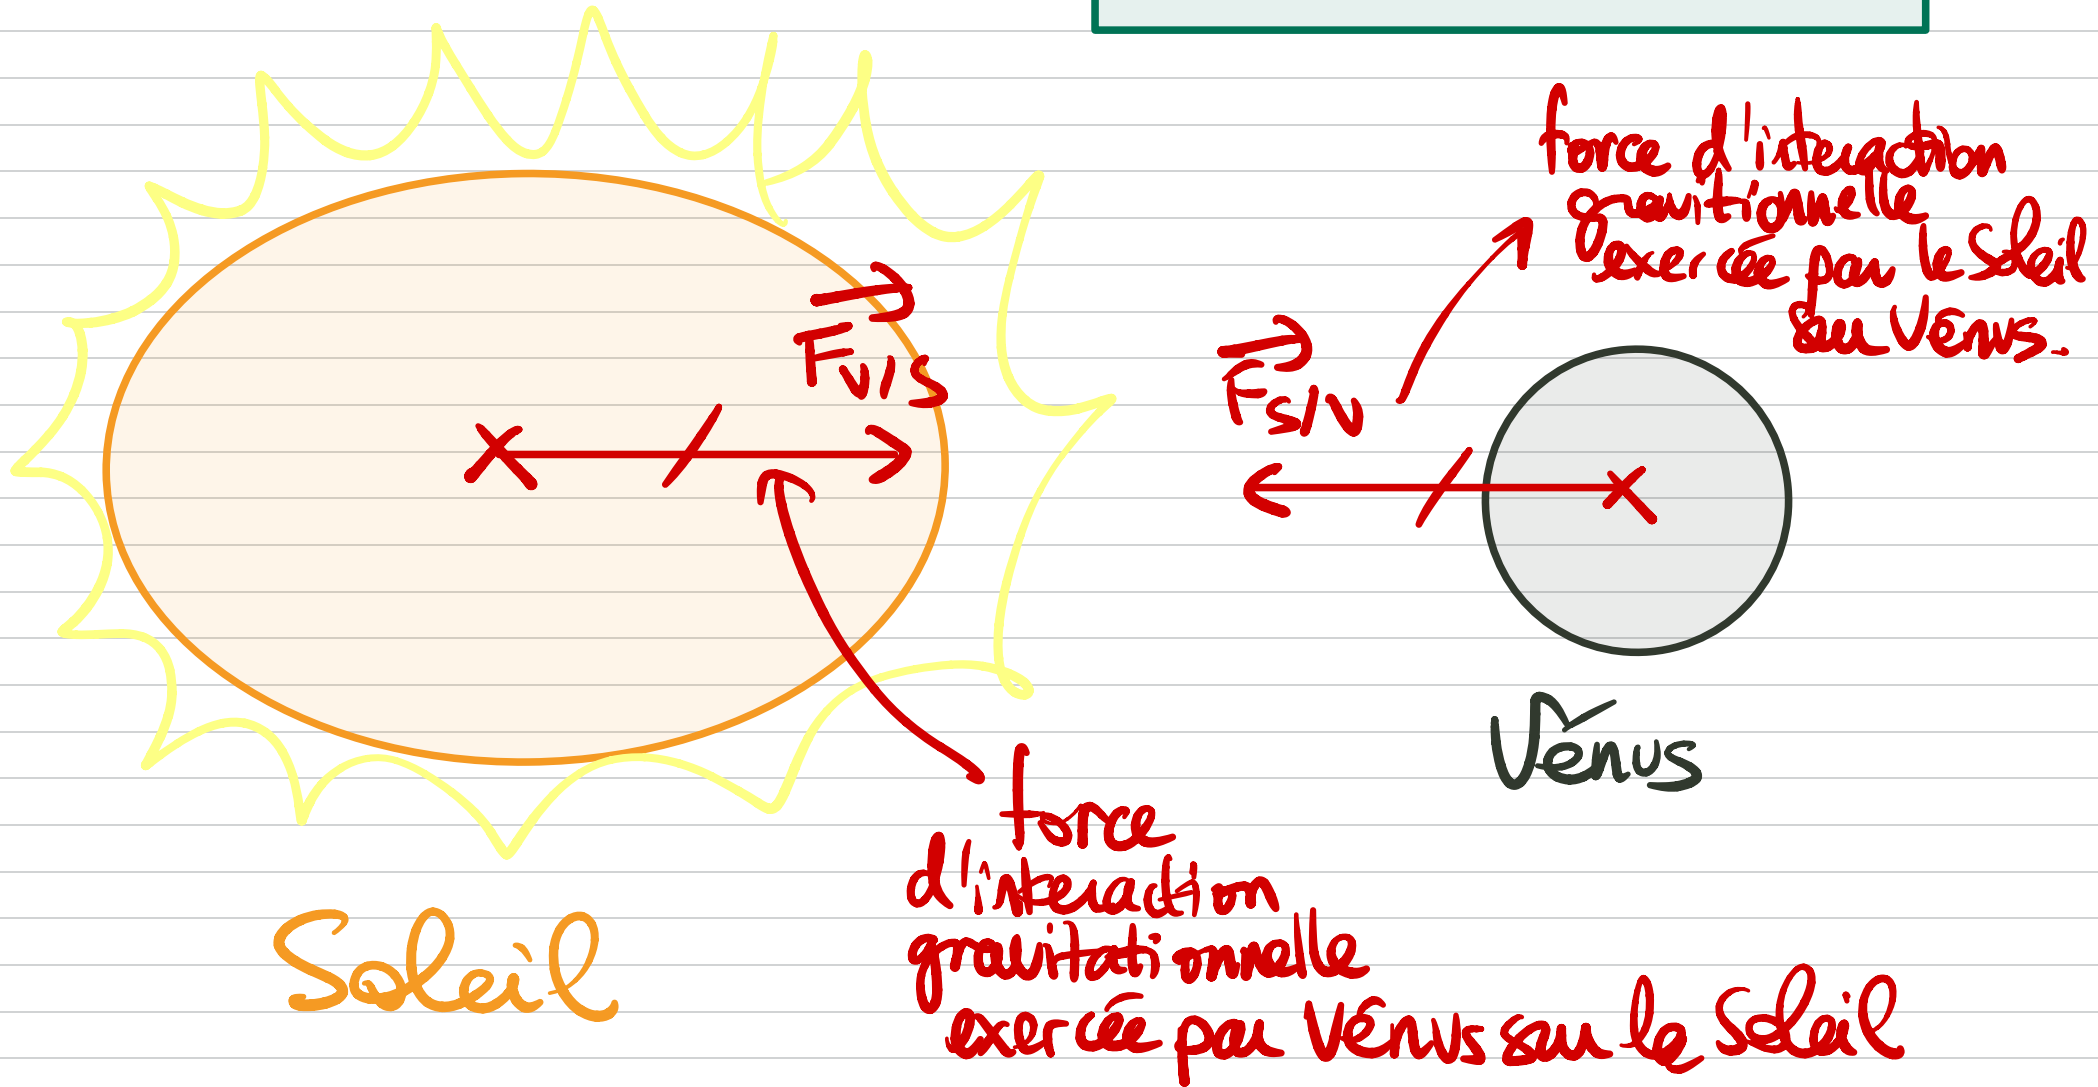 force d'interaction
gravitionnelle
exercée par le Soleil
sur Vénus.
F V/S
F S/V
Vénus
force
d'interaction
gravitationnelle
exercée par Vénus sur le Soleil
Soleil